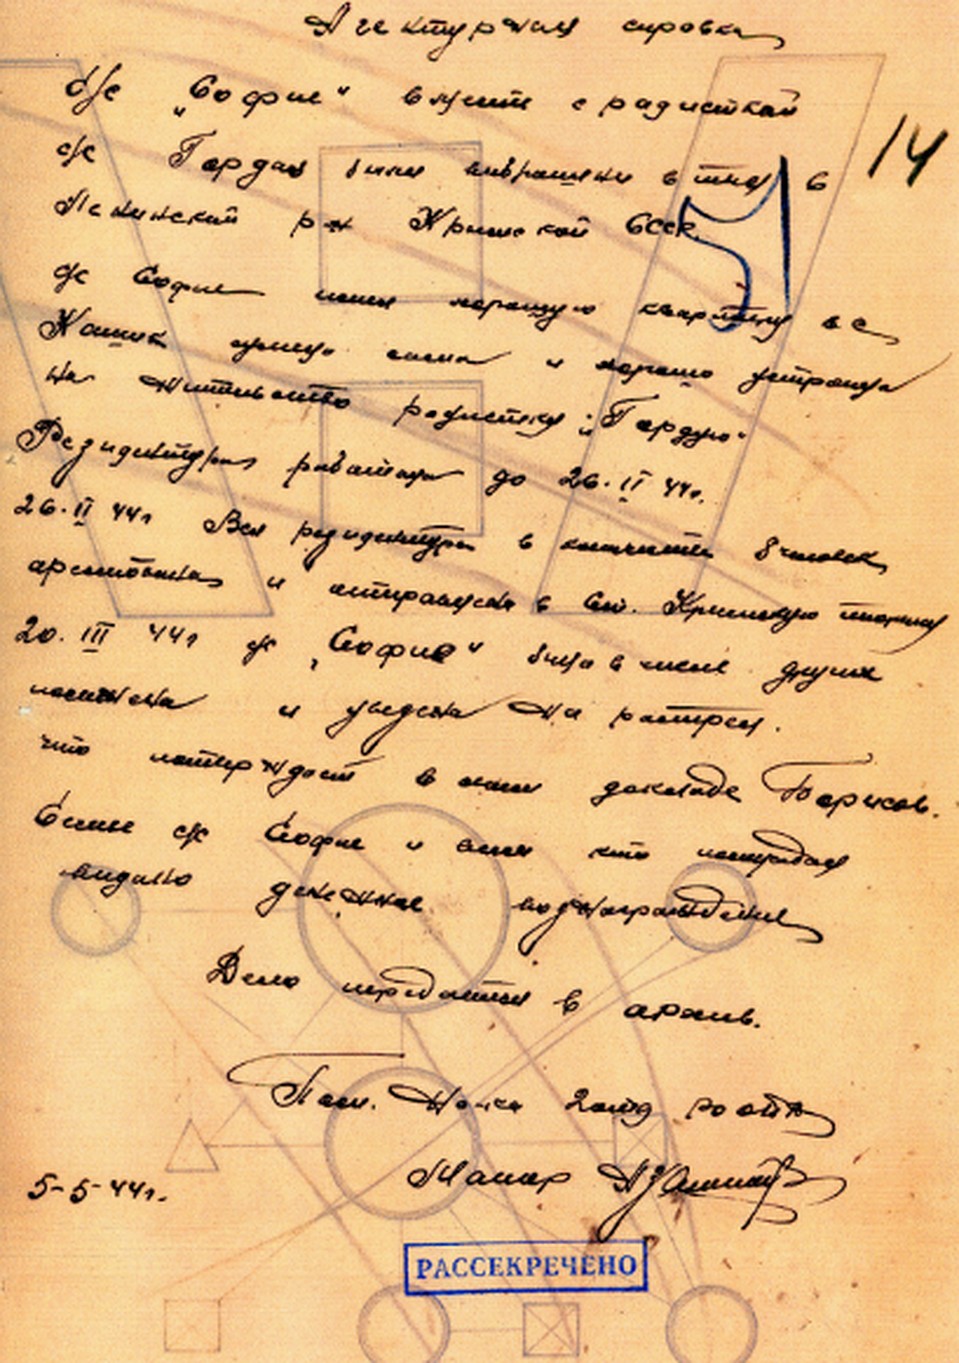 Агентурная справка
с/с "Софие" вместе с радисткой
14
с/с Гордая были выброшены в тыл в
Ленинский р-н Крымской ССР
5
с/с Софие хорошую квартиру в с
и хорошо устроила
на жительство радистку "Гордую"
Резидентура работала до 26.II 44г.
26.II 44г Вся резидентура в количестве 8 человек
арестована и отправлена в Ст. Крымскую тюрьму
20.III 44г с/с "Софие" была в числе других
и уведена на расстрел.
что потверждает в своем докладе Борисов.
Семье с/с Софие и всем кто пострадал
выдано денежное вознаграждение
Дело передается в архив.
Пом. Нач-ка 2 отд РО ОПА
Майор
5-5-44г.
РАССЕКРЕЧЕНО